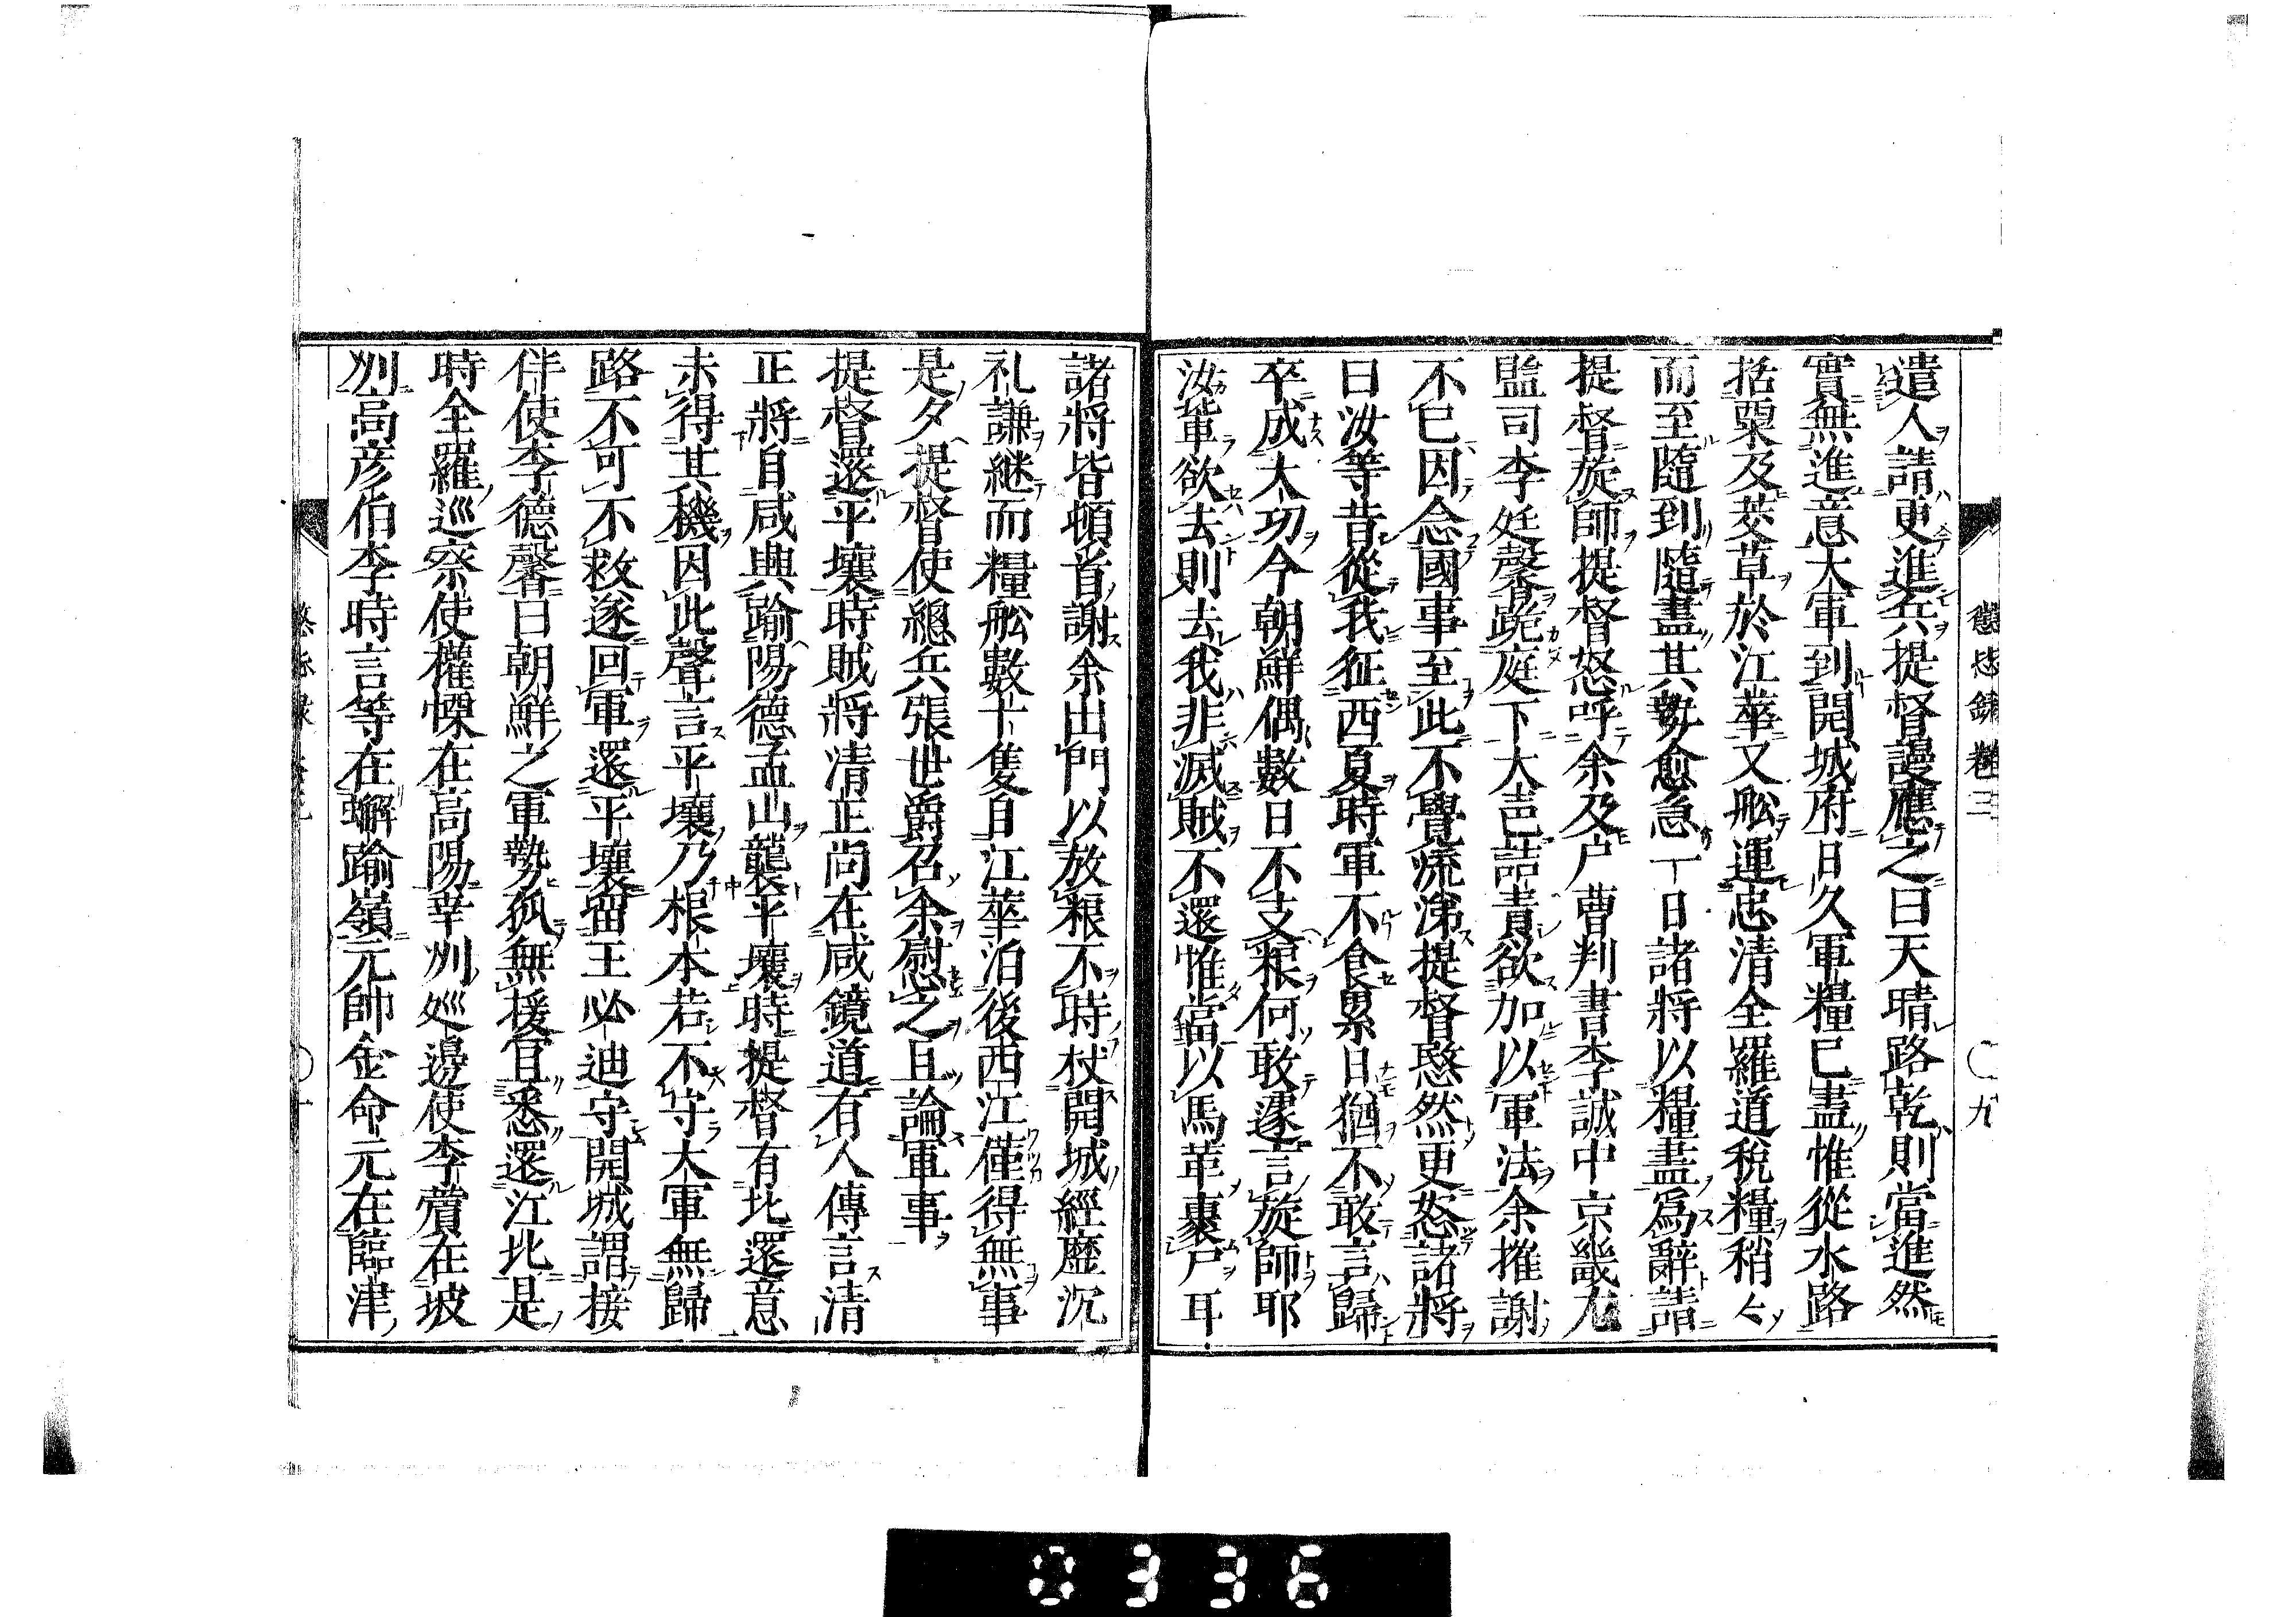 懲毖録 卷三 〇九
遣人請更進兵提督謾應之曰天晴路乾則當進然
實無進意大軍到開城府日久軍糧已盡惟從水路
括粟及茭草於江華又舩運忠清全羅道稅糧稍々
而至隨到隨盡其勢愈急一日諸將以糧盡爲辭請
提督旋師提督怒呼余及户曹判書李誠中京畿左
監司李廷馨跪庭下大㫖詰責欲加以軍法余摧謝
不已因念國事至此不覺流涕提督愍然更怒諸將
曰汝等昔從我征西夏時軍不食累日猶不敢言歸
卒成大功今朝鮮偶數日不支粮何敢遽言旋師耶
汝輩欲去則去我非滅賊不還惟當以馬革裹尸耳
諸將皆頓首謝余出門以放粮不時杖開城經歴沉
礼謙継而糧舩數十隻自江華泊後西江僅得無事
是夕提督使總兵張世爵召余慰之且論軍事
提督還平壤時賊將清正尚在咸鏡道有人傳言清
正將自咸興踰陽德孟山襲平壤時提督有北還意
未得其機因此聲言平壤乃根本若不守大軍無歸
路不可不救遂回軍還平壤留王必迪守開城謂接
伴使李德馨曰朝鮮之軍勢孤無援宜悉還江北是
時全羅巡察使權慄在高陽幸州巡邊使李薲在坡
州高彦伯李時言等在蠏踰嶺元帥金命元在臨津
0336